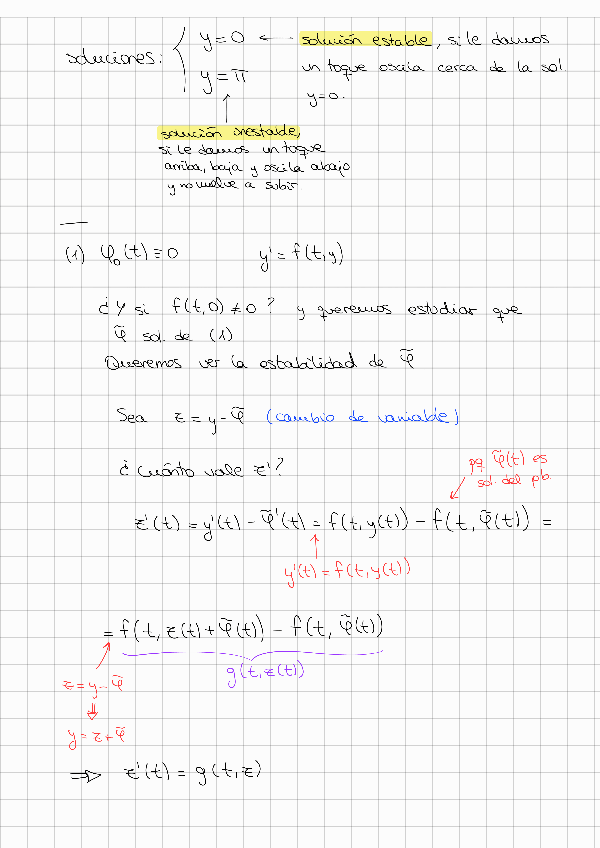 soluciones: { y = 0 ← solución estable, si le damos
un toque oscila cerca de la sol
y=0.
y = π
solución inestable,
si le damos un toque
arriba, baja y oscila abajo
y no vuelve a subir
(1) φ₀(t) ≡ 0 y' = f(t,y)
¿Y si f(t,0) ≠ 0? y queremos estudiar que
φ̃ sol. de (1)
Queremos ver la estabilidad de φ̃
Sea z = y - φ̃ (cambio de variable)
¿Cuánto vale z'?
pq φ̃(t) es
sol. del pb.
z'(t) = y'(t) - φ̃'(t) = f(t, y(t)) - f(t, φ̃(t)) =
y'(t) = f(t, y(t))
= f(t, z(t) + φ̃(t)) - f(t, φ̃(t))
g(t, z(t))
z = y - φ̃
⇓
y = z + φ̃
⇒ z'(t) = g(t, z)